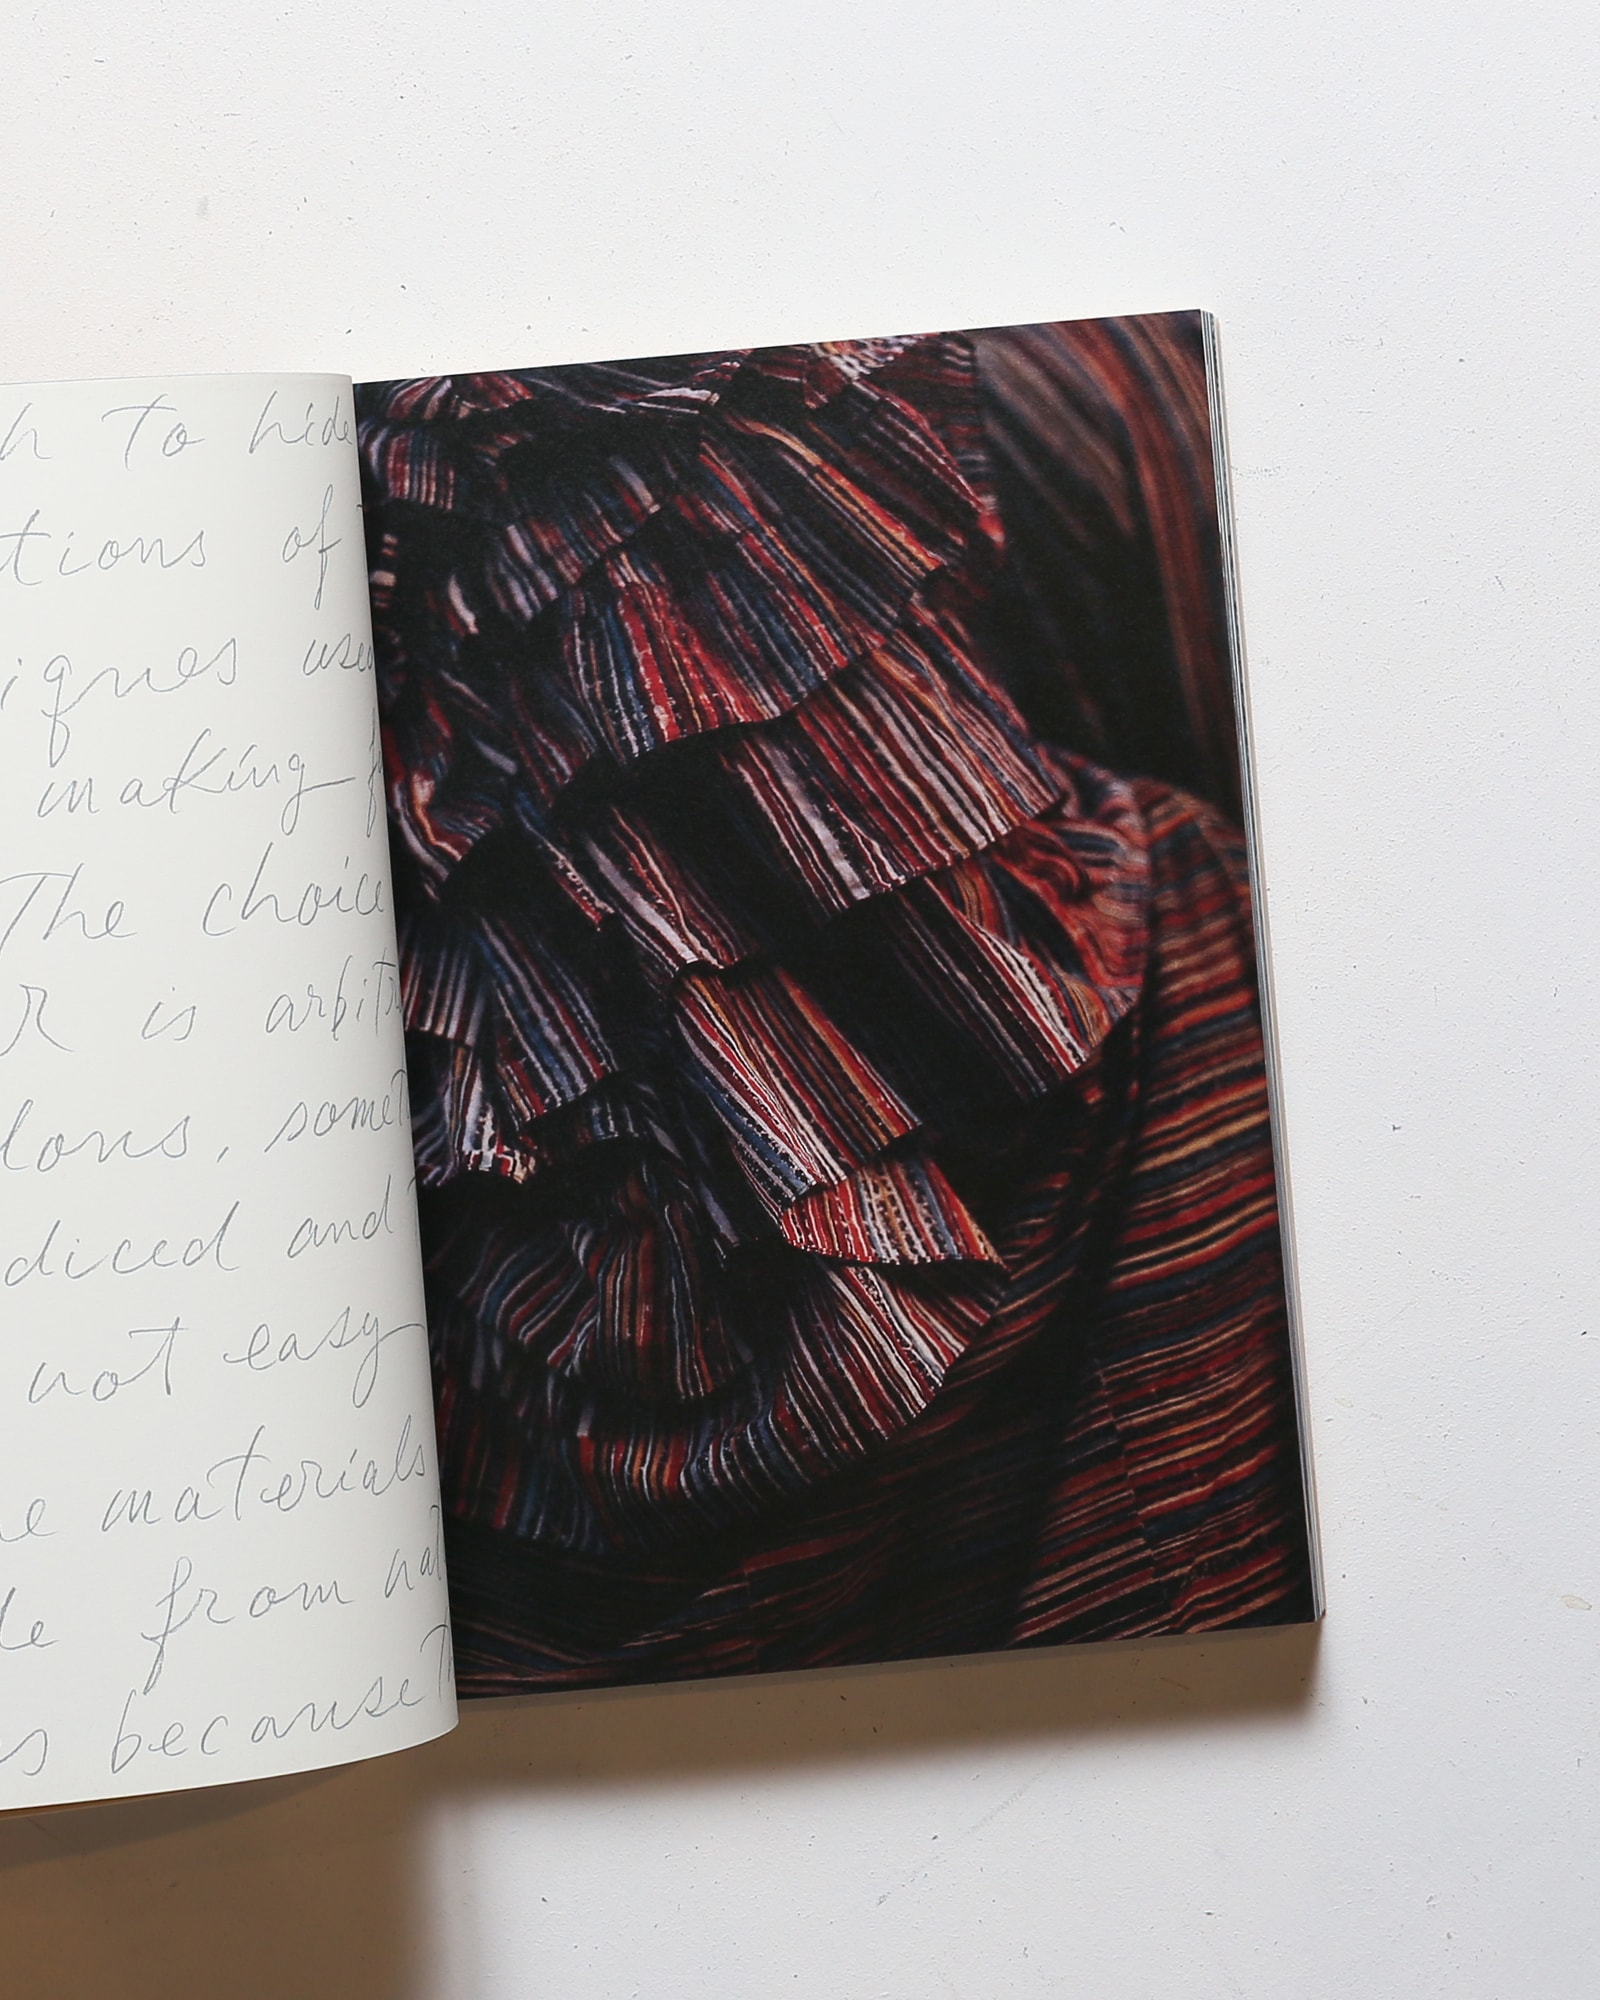 h to hide
tions of
iques use
making
The choice
r is arbitr
lors, somet
diced and
not easy
e materials
le from nat
s because